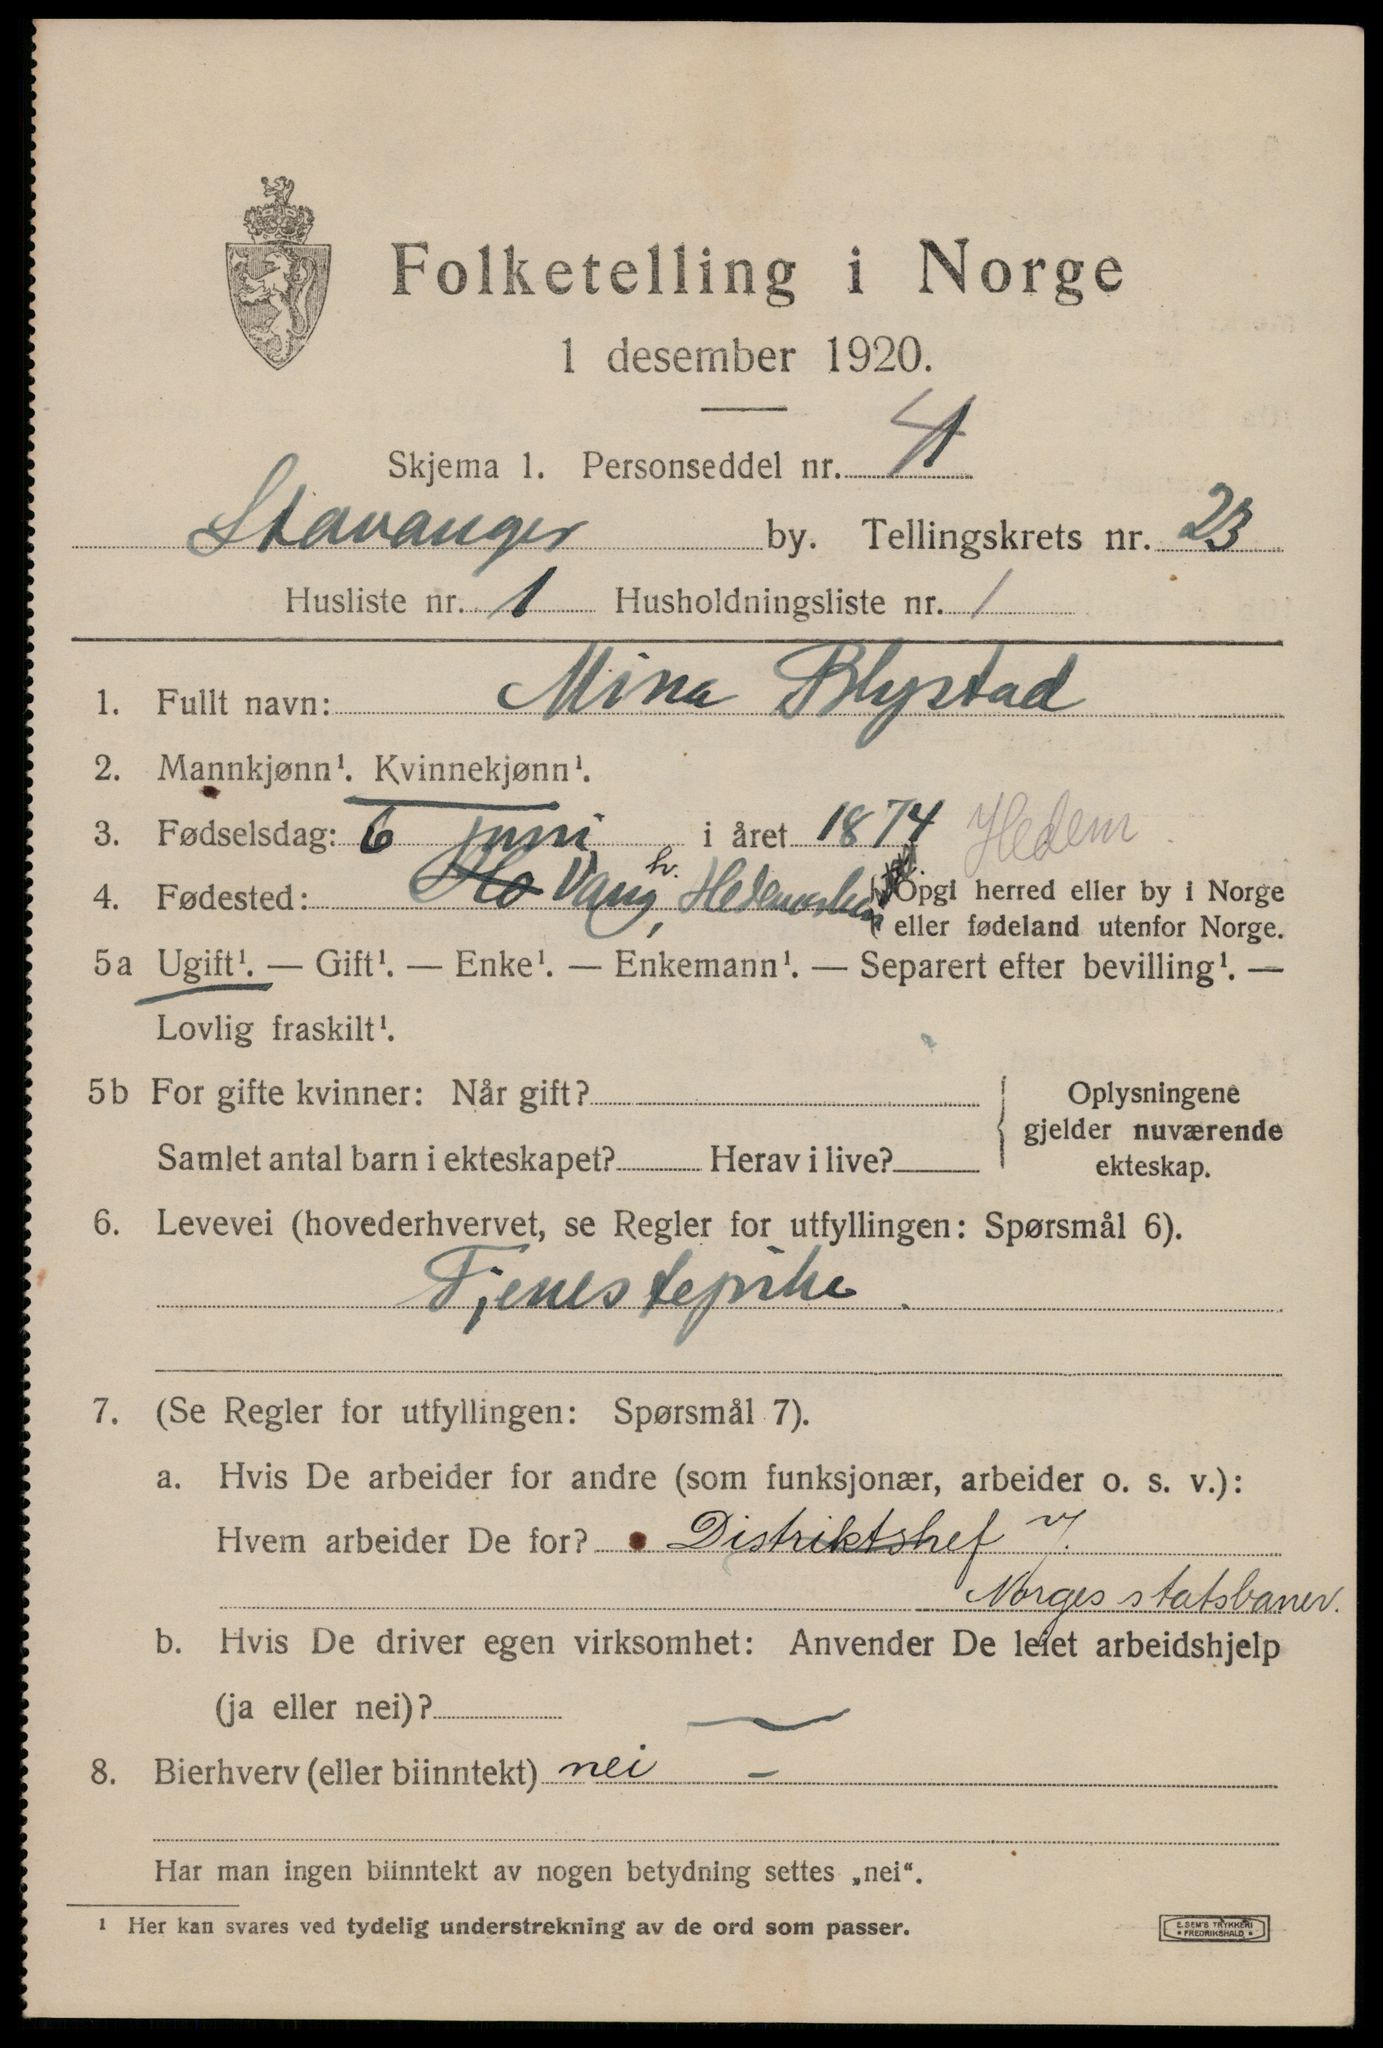 Folketelling i Norge
1 desember 1920.
Skjema 1. Personseddel nr. 4
Stavanger by. Tellingskrets nr. 23
Husliste nr. 1 Husholdningsliste nr. 1
1. Fullt navn: Mina Blystad
2. Mannkjønn¹. Kvinnekjønn¹.
3. Fødselsdag: 6 juni i året 1874 Hedem
4. Fødested: Vang h., Hedemarken (Opgi herred eller by i Norge
eller fødeland utenfor Norge.
5a Ugift¹. — Gift¹. — Enke¹. — Enkemann¹. — Separert efter bevilling¹. —
Lovlig fraskilt¹.
5b For gifte kvinner: Når gift? Oplysningene
gjelder nuværende
Samlet antal barn i ekteskapet? Herav i live? ekteskap.
6. Levevei (hovederhvervet, se Regler for utfyllingen: Spørsmål 6).
Tjenestepike
7. (Se Regler for utfyllingen: Spørsmål 7).
a. Hvis De arbeider for andre (som funksjonær, arbeider o. s. v.):
Hvem arbeider De for? Distriktshef v/.
Norges statsbaner.
b. Hvis De driver egen virksomhet: Anvender De leiet arbeidshjelp
(ja eller nei)? —
8. Bierhverv (eller biinntekt) nei —
Har man ingen biinntekt av nogen betydning settes „nei“.
¹ Her kan svares ved tydelig understrekning av de ord som passer.
E. SEM'S TRYKKERI
• FREDRIKSHALD •